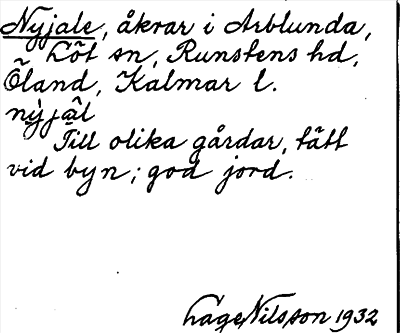 Nyjale, åkrar i Arblunda,
Löt sn, Runstens hd,
Öland, Kalmar l.
nỳjä̀l
Till olika gårdar, tätt
vid byn; god jord.
Lage Nilsson 1932